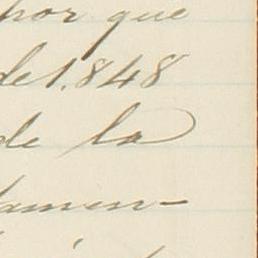 por que
de 1.848
de la
damen-